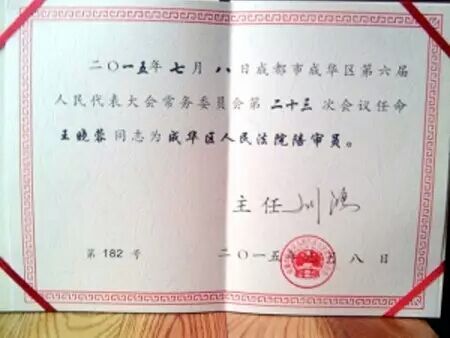 二〇一五年七月八日成都市成华区第六届
人民代表大会常务委员会第二十三次会议任命
王晓蓉同志为成华区人民法院陪审员。
主任
第182号
二〇一五 月八日